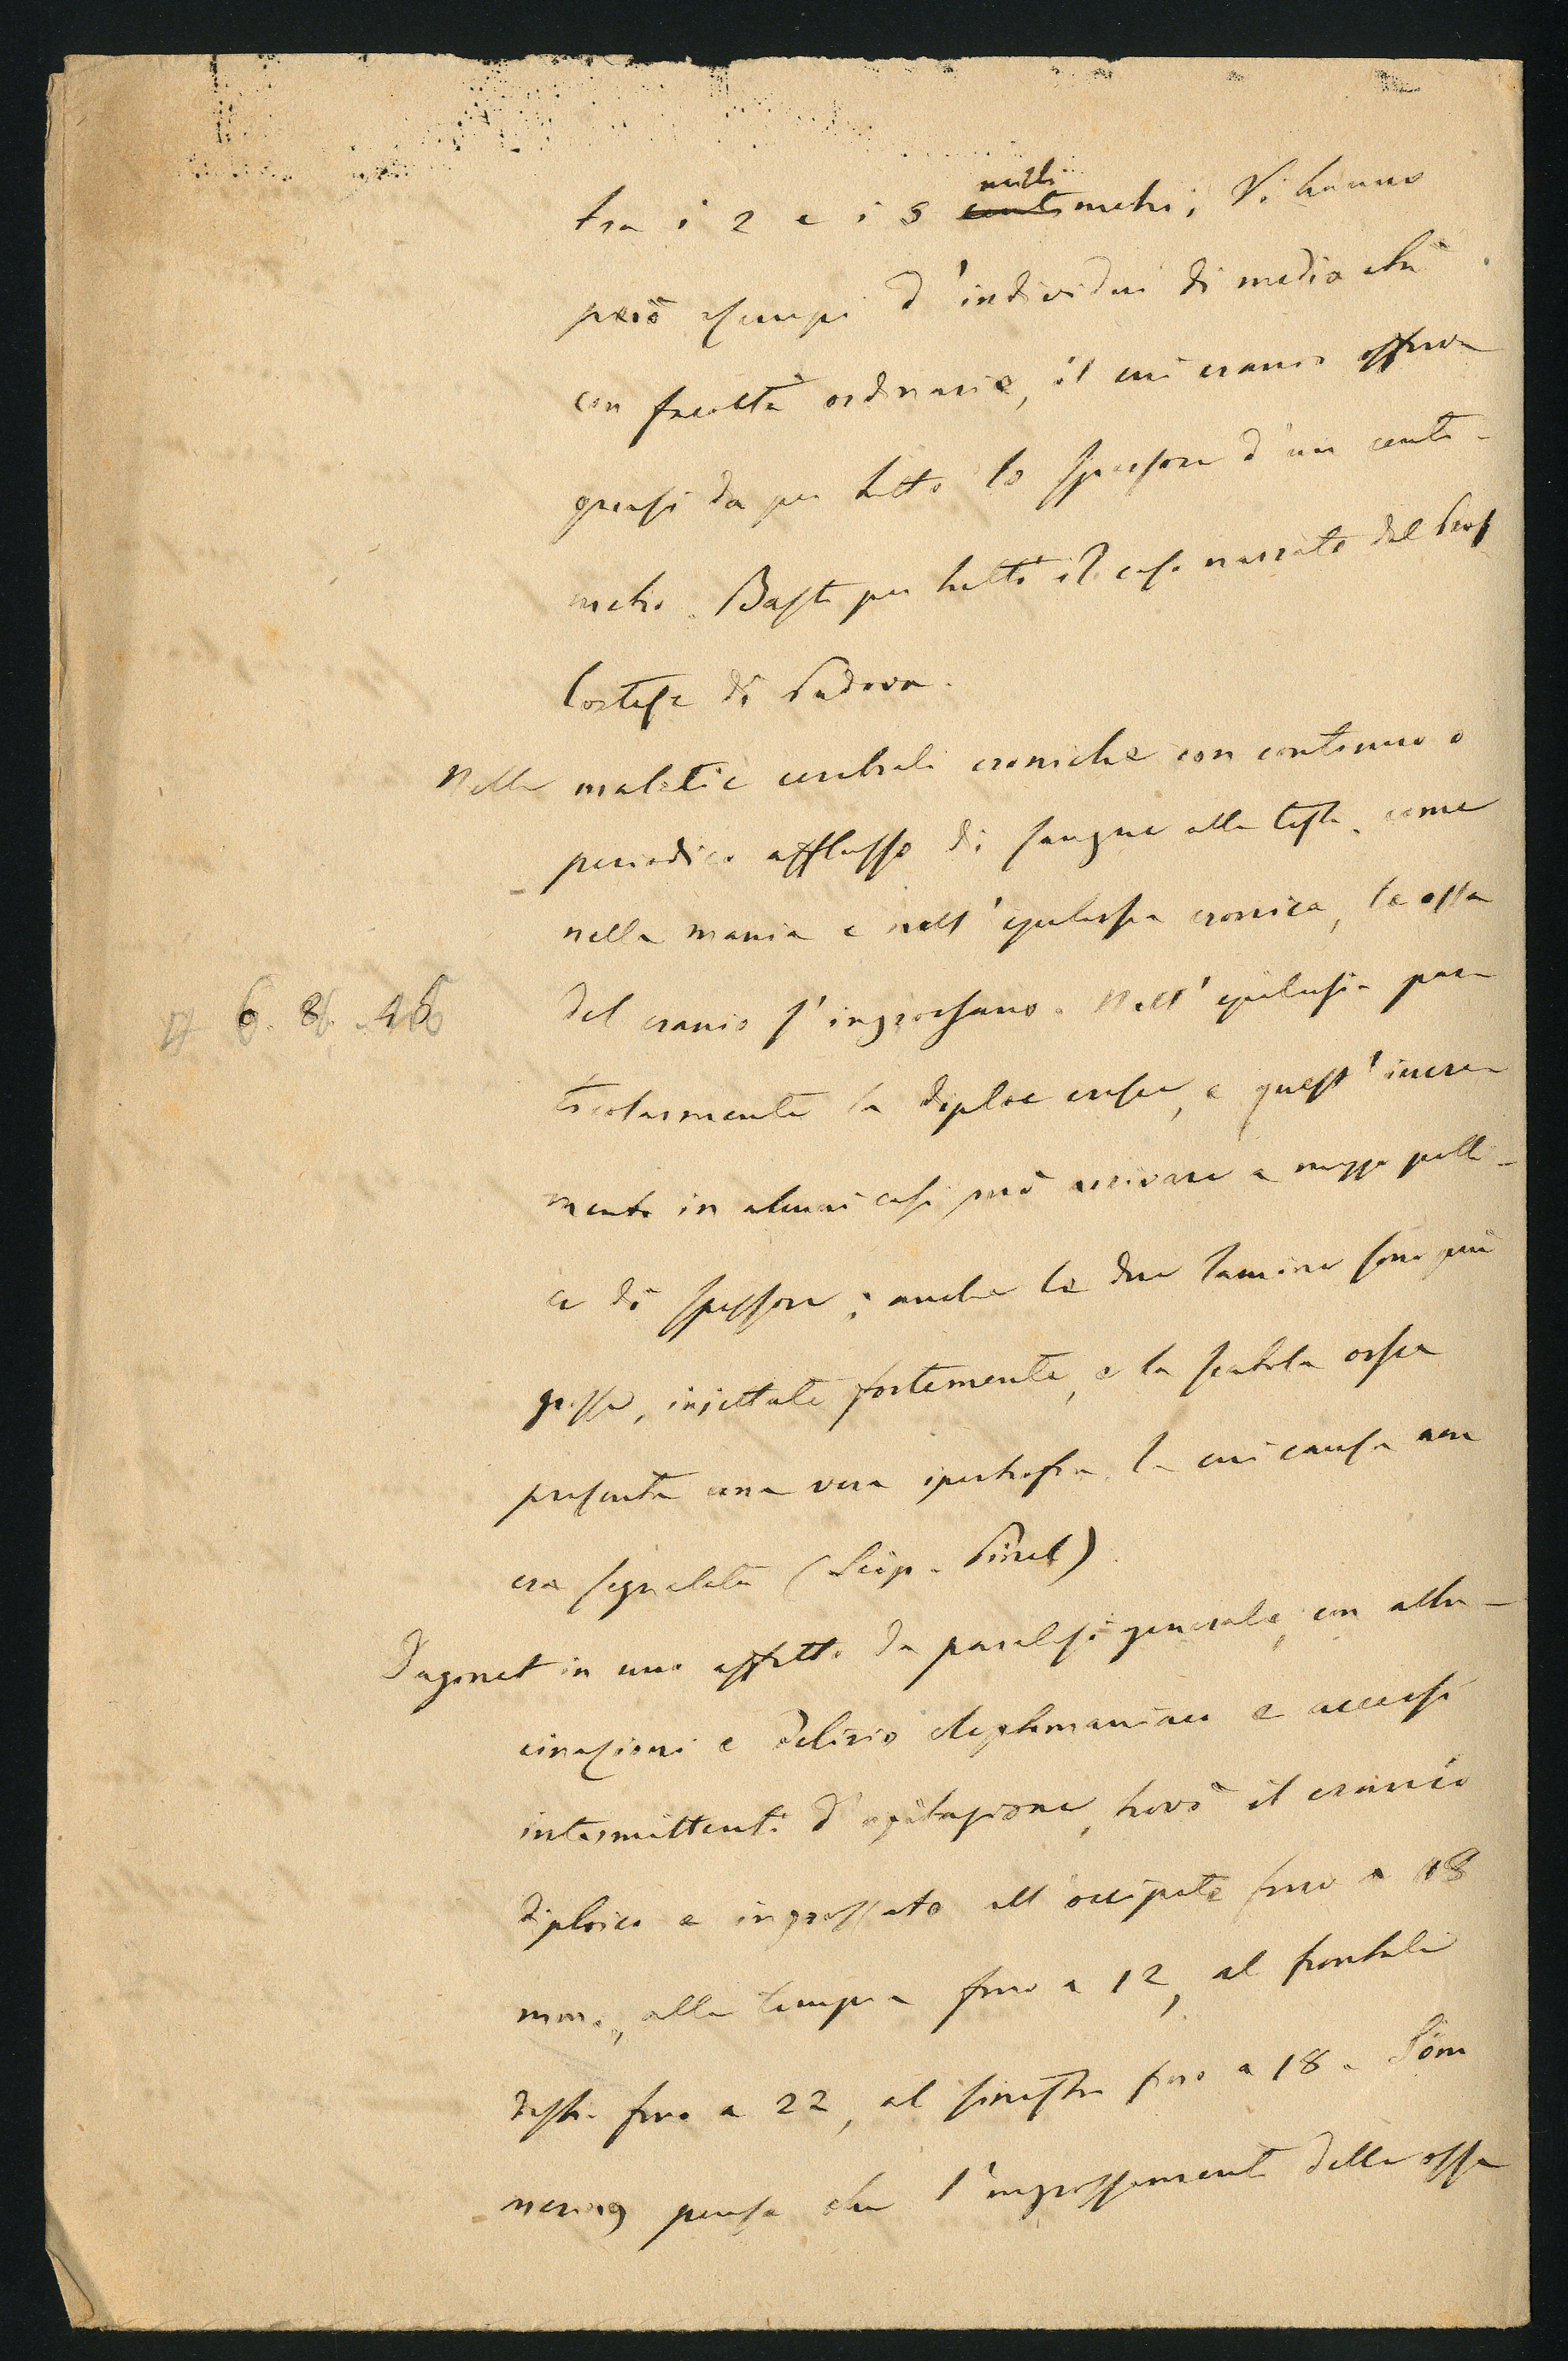 tra i 2 e i 5 milli
centimetri; Vi hanno
però esempi d'individui di media età
con facoltà ordinarie, il cui cranio offriva
quasi da per tutto lo spessore d'un centi-
metro. Basti per tutti il caso narrato dal Prof
Cortese di Padova.
Nelle malatie cerebrali croniche con continuo o
periodico afflusso di sangue alla testa, come
nella mania e nell'epilessia cronica, le ossa
del cranio s'ingrossano. Nell'epilessia par-
6. 8. 15
ticolarmente la diploe cresce, e quest'incre-
mento in alcuni casi può arrivare a mezzo polli-
ce di spessore; anche le due lamine sono più
grosse, iniettate fortemente, e la scatola ossea
presenta una vera ipertrofia, la cui causa non
era segnalata (Scip. Pinel).
Dagonet in uno affetto da paralisi generale, con allu-
cinazioni e delirio cleptomaniaco e accessi
intermittenti d'agitazione, trovò il cranio
diploico e ingrossato all'occipite fino a 18
mm., alle tempia fino a 12, al frontale
destro fino a 22, al sinistro fino a 18. Söm
mering pensa che l'ingrossamento delle ossa